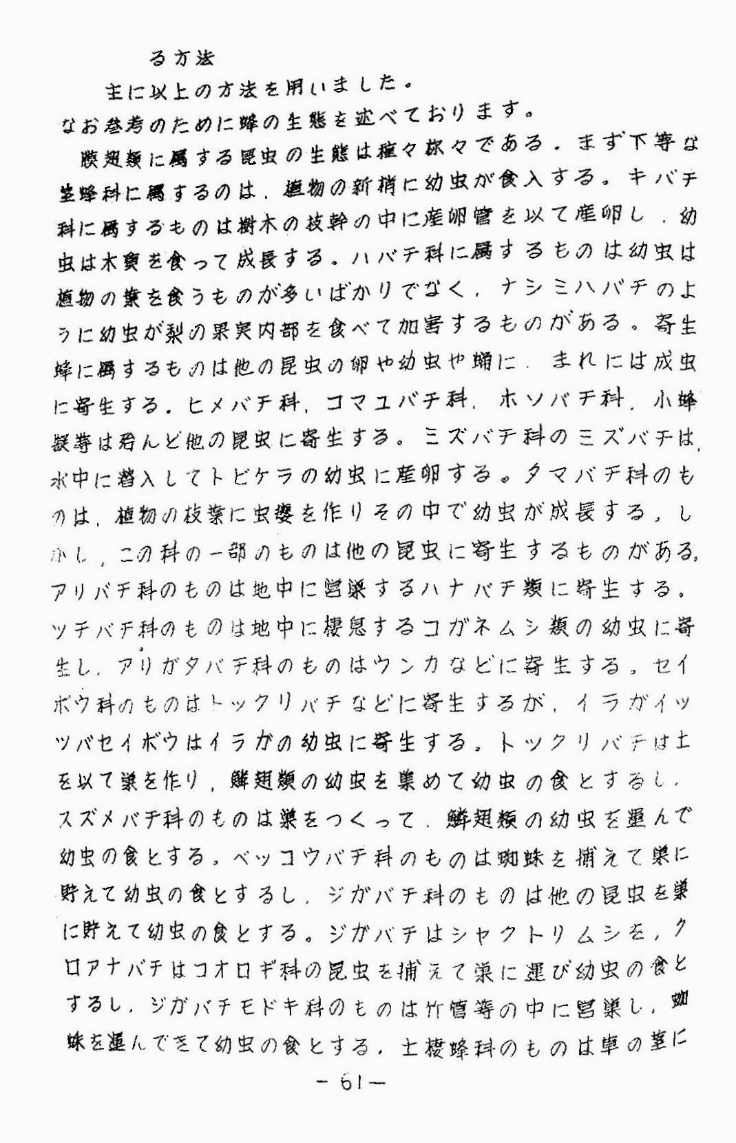 る方法
主に以上の方法を用いました。
なお参考のために蜂の生態を述べております。
膜翅類に属する昆虫の生態は種々様々である。まず下等な
茎蜂科に属するのは、植物の新梢に幼虫が食入する。キバチ
科に属するものは樹木の枝幹の中に産卵管を以て産卵し、幼
虫は木質を食って成長する。ハバチ科に属するものは幼虫は
植物の葉を食うものが多いばかりでなく、ナシミハバチのよ
うに幼虫が梨の果実内部を食べて加害するものがある。寄生
蜂に属するものは他の昆虫の卵や幼虫や蛹に、まれには成虫
に寄生する。ヒメバチ科、コマユバチ科、ホソバチ科、小蜂
類等は殆んど他の昆虫に寄生する。ミズバチ科のミズバチは、
水中に潜入してトビケラの幼虫に産卵する。タマバチ科のも
のは、植物の枝葉に虫癭を作りその中で幼虫が成長する。し
かし、この科の一部のものは他の昆虫に寄生するものがある。
アリバチ科のものは地中に営巣するハナバチ類に寄生する。
ツチバチ科のものは地中に棲息するコガネムシ類の幼虫に寄
生し、アリガタバチ科のものはウンカなどに寄生する。セイ
ボウ科のものはトックリバチなどに寄生するが、イラガイツ
ツバセイボウはイラガの幼虫に寄生する。トックリバチは土
を以て巣を作り、鱗翅類の幼虫を集めて幼虫の食とするし、
スズメバチ科のものは巣をつくって、鱗翅類の幼虫を運んで
幼虫の食とする。ベッコウバチ科のものは蜘蛛を捕えて巣に
貯えて幼虫の食とするし、ジガバチ科のものは他の昆虫を巣
に貯えて幼虫の食とする。ジガバチはシャクトリムシを、ク
ロアナバチはコオロギ科の昆虫を捕えて巣に運び幼虫の食と
するし、ジガバチモドキ科のものは竹管等の中に営巣し、蜘
蛛を運んできて幼虫の食とする。土棲蜂科のものは草の茎に
－61－